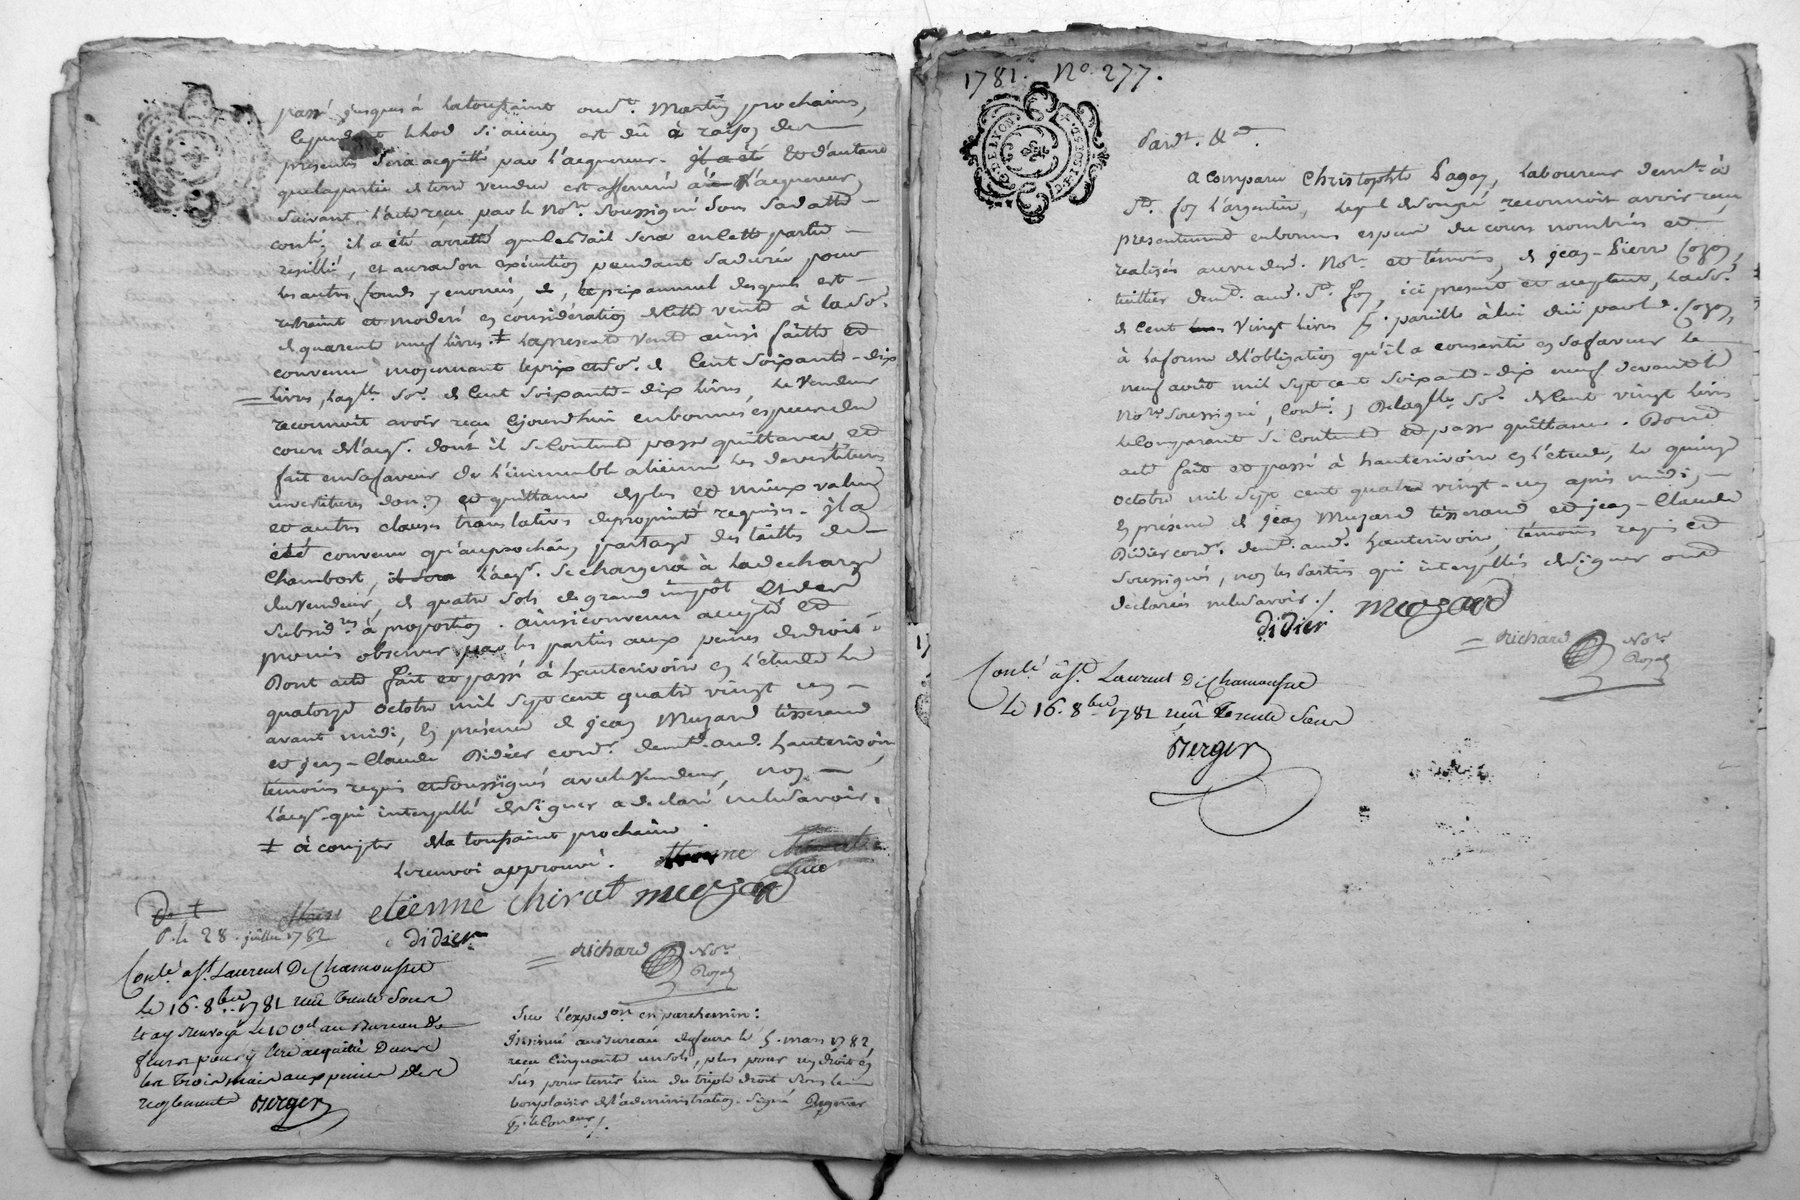 passé jusques à la toussaint ou st. Martin prochains,
lequel est dû à raison des
presentes sera acquitté par l'acquereur. il a été et d'autant
que la partie de terre vendue est affermée à l'acquereur
suivant l'acte reçu par le Nore. soussigné sous sa datte
conté. il a été arretté que le Bail sera en cette partie
resillié, et aura son exécution pendant sa durée pour
les autres fonds y enoncés, de, le prix annuel desquels est
restraint et moderé en considération de cette vente à la so.
de quarente neuf livres. ‡ la presente vente ainsi faitte et
convenue moyennant le prix et so. de cent soixante-dix
livres, laqlle so. de cent soixante-dix livres, le vendeur
reconnoit avoir reçu cejourdhui en bonnes especes du
cours de l'aqr. dont il se contente passe quittance et
fait en sa faveur de l'immeuble aliéné les devestitures
investitures don.on et quittance de plus et mieux value
et autres clauses translatives de propriété requises. il a
été convenu qu'au prochain partage des tailles de
Chambost, il sera l'aqr. se chargera à la decharge
du vendeur, de quatre sols de grand impôt et des
subsid.res à proportion. ainsi convenu accepté et
promis observer par les parties aux peines de droit.
Dont acte fait et passé à hauterivoire en l'etude le
quatorze octobre mil sept cent quatre vingt un
avant midi, en présence de jean Muzard tisserand
et jean-Claude Didier cordr. demts. aud. hauterivoire,
temoins requis et soussignés avec le vendeur, non
l'aqr. qui interpellé de signer a declaré ne le savoir.
‡ à compter de la toussaint prochaine
le renvoi approuvé.
etienne chirat muzard
didier
P. le 28. juillet 1782
richard Nore
Royal
Conlé a st. Laurent De Chamousset
le 16. 8bre 1781 reçû trente sous
et ay renvoyé le 100d au Bureau De
feurs pour y être acquitté Dans
les trois mois aux peines des
reglements Berger
sur l'expedon en parchemin:
Insinué au bureau de feurs le 5. mars 1782,
reçu cinquante un sols, plus pour un droit en
sus pour tenir lieu du triple droit sous le
bonplaisir de l'administration. signé
1781. No. 277.
G. DE LYON
Pardt. &a.
a comparu Christophle Pagay, laboureur demt. à
Ste. foy l'argentiere, lequel de son gré reconnoit avoir reçu
presentement en bonnes especes du cours nombrées et
realisées au vu desd. Nore et temoins, de jean-Pierre Cozon,
tuillier demt. aud. Ste. foy, ici present et aceptant, la so.
de cent vingt livres pareille à lui duë par led. Cozon,
à la forme de l'obligation qu'il a consentie en sa faveur le
neuf août mil sept cent soixante-dix neuf devant le
Nore. soussigné, contée; De laqlle so. de cent vingt livres
le comparant se contente et passe quittance. Dont
acte fait et passé à hauterivoire en l'etude, le quinze
octobre mil sept cent quatre vingt-un après midi,
en présence de jean Muzard tisserand et jean-Claude
Didier cordr. demts. aud. hauterivoire, témoins requis et
soussignés, non les parties qui interpellées de signer ont
declarées ne le savoir./.
didier muzard
richard Nore
Royal
Conlé à st. Laurent De Chamousset
le 16. 8bre 1781 reçû trente sous
Berger